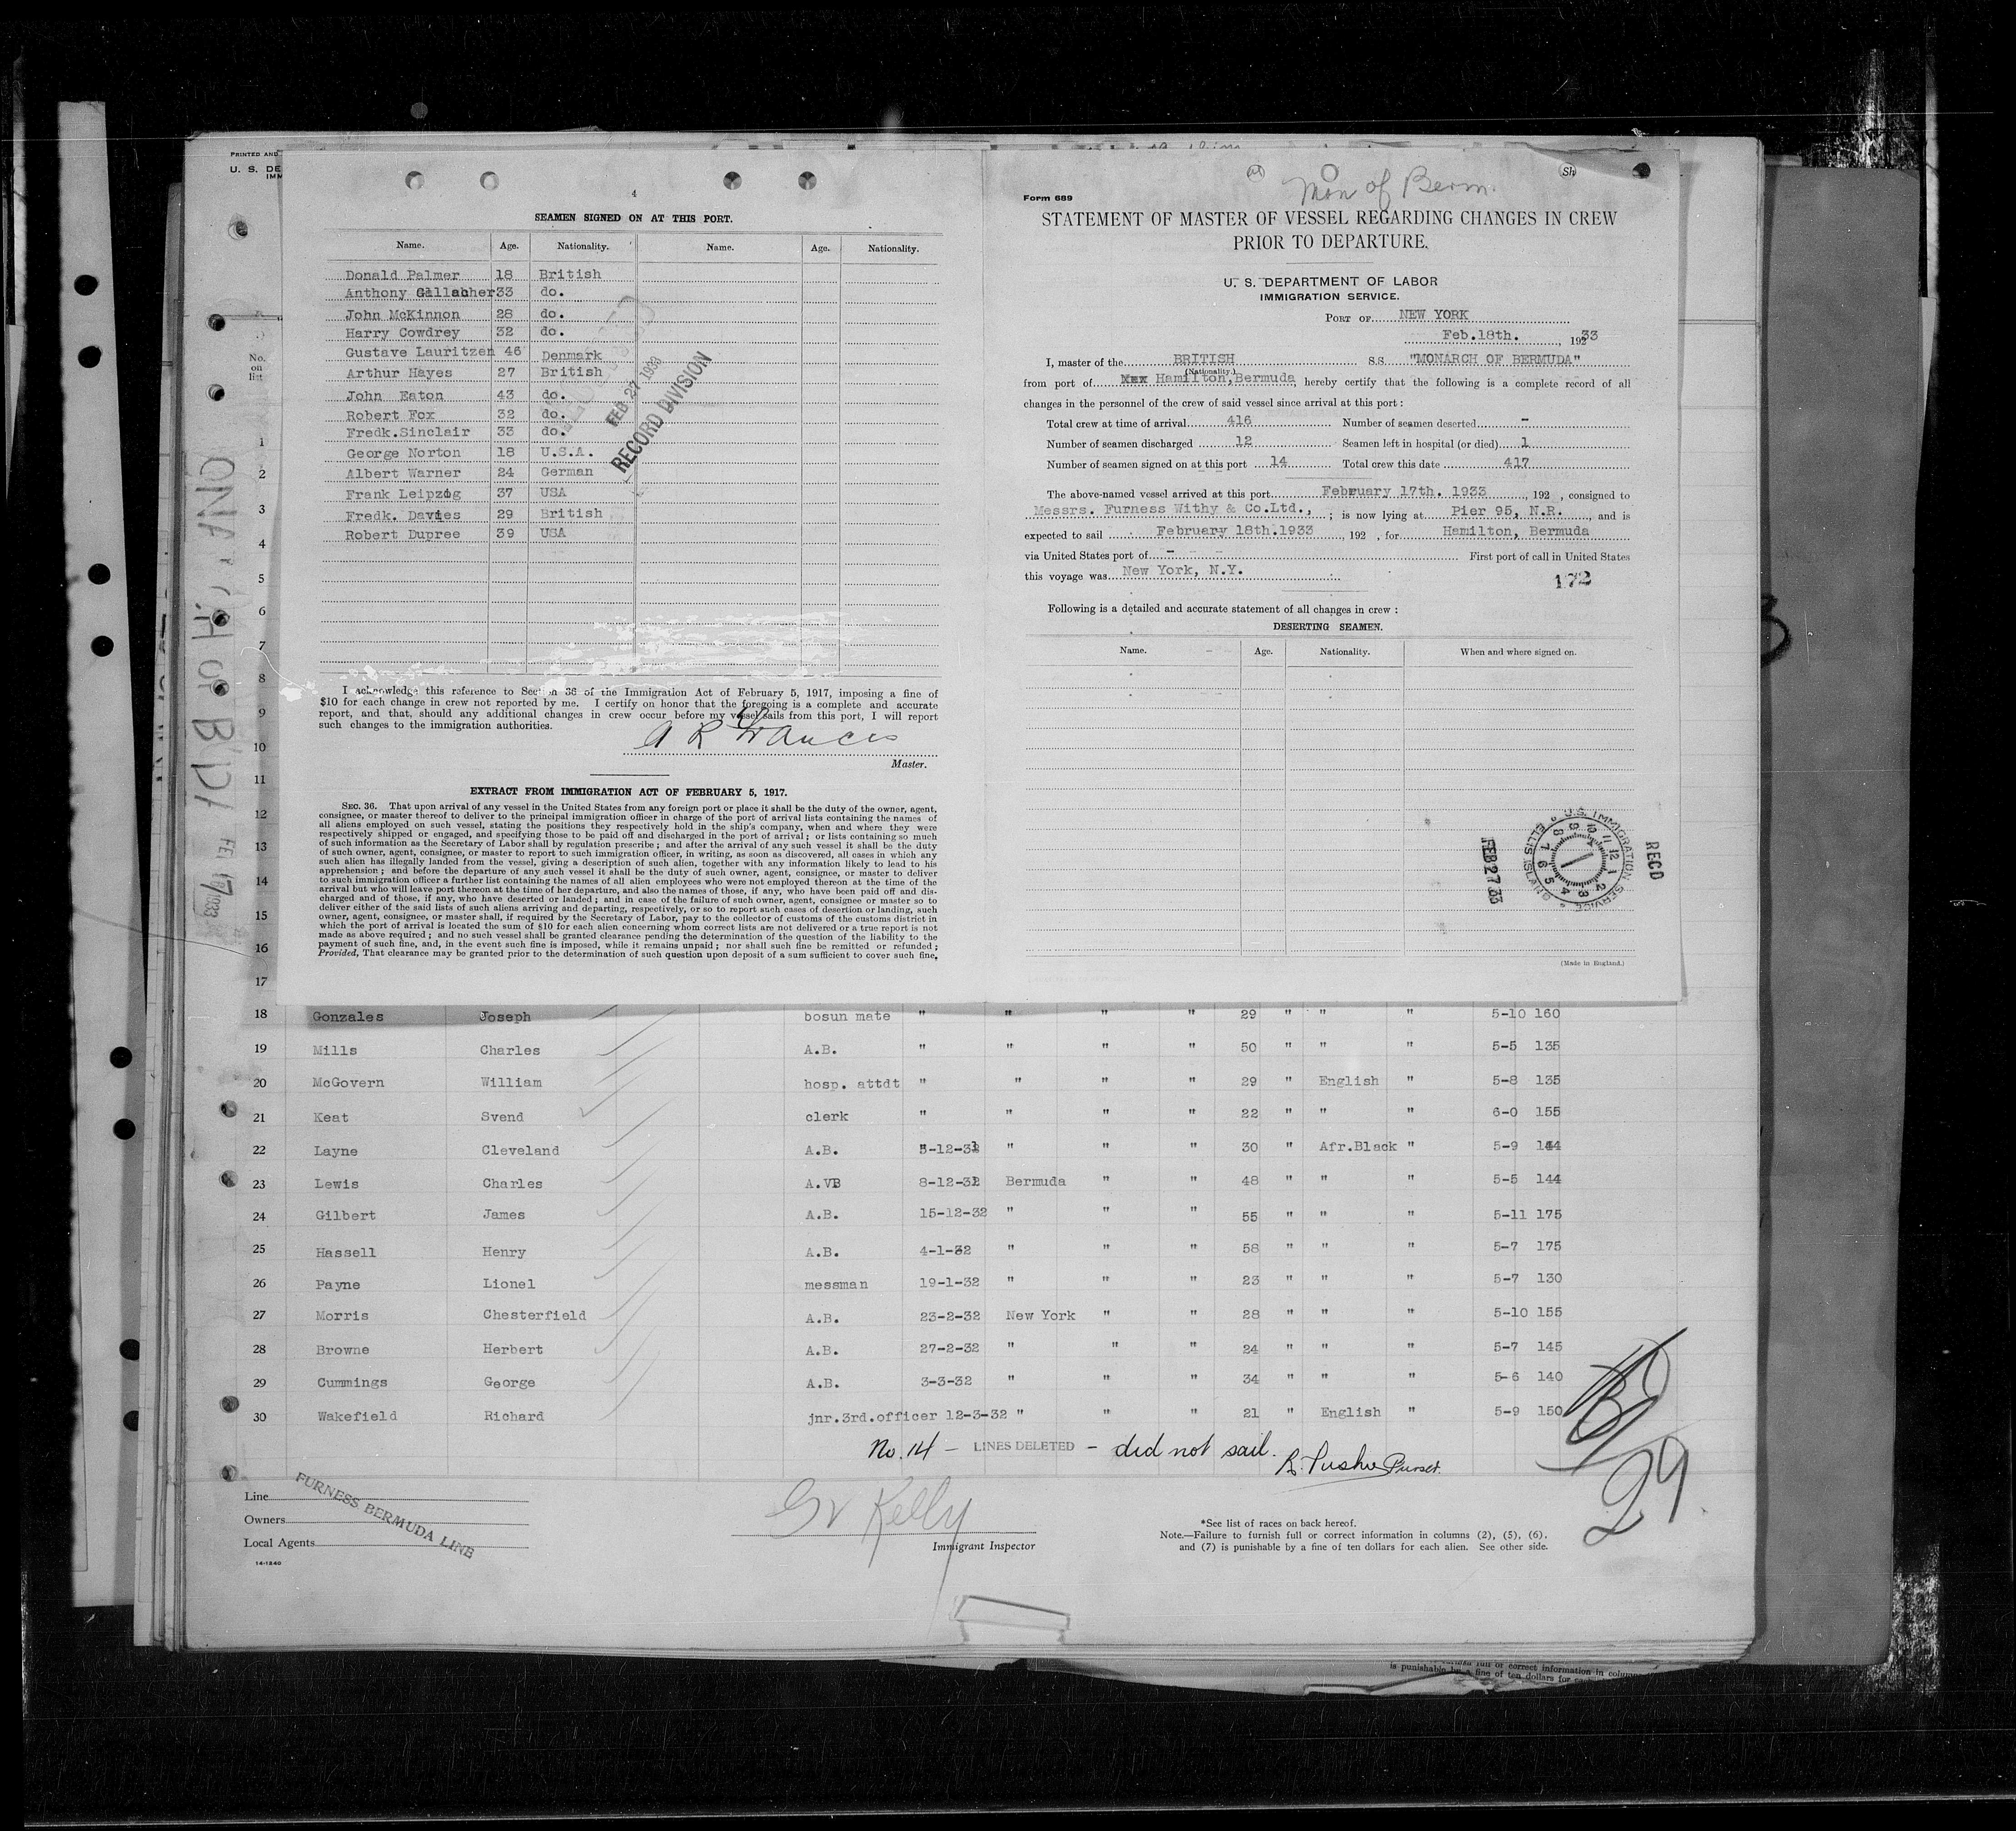 PRINTED AND
U. S. DE
IMM
No.
on
list
4
SEAMEN SIGNED ON AT THIS PORT.
Name. Age. Nationality. Name. Age. Nationality.
Donald Palmer 18 British
Anthony Gallacher 33 do.
John McKinnon 28 do.
Harry Cowdrey 32 do.
Gustave Lauritzen 46 Denmark
Arthur Hayes 27 British
John Eaton 43 do.
Robert Fox 32 do.
Fredk.Sinclair 33 do.
George Norton 18 U.S.A.
Albert Warner 24 German
Frank Leipzig 37 USA
Fredk. Davies 29 British
Robert Dupree 39 USA
FEB 27 1933
RECORD DIVISION
I acknowledge this reference to Section 36 of the Immigration Act of February 5, 1917, imposing a fine of
$10 for each change in crew not reported by me. I certify on honor that the foregoing is a complete and accurate
report, and that, should any additional changes in crew occur before my vessel sails from this port, I will report
such changes to the immigration authorities.
A R Francis
Master.
EXTRACT FROM IMMIGRATION ACT OF FEBRUARY 5, 1917.
SEC. 36. That upon arrival of any vessel in the United States from any foreign port or place it shall be the duty of the owner, agent,
consignee, or master thereof to deliver to the principal immigration officer in charge of the port of arrival lists containing the names of
all aliens employed on such vessel, stating the positions they respectively hold in the ship's company, when and where they were
respectively shipped or engaged, and specifying those to be paid off and discharged in the port of arrival; or lists containing so much
of such information as the Secretary of Labor shall by regulation prescribe; and after the arrival of any such vessel it shall be the duty
of such owner, agent, consignee, or master to report to such immigration officer, in writing, as soon as discovered, all cases in which any
such alien has illegally landed from the vessel, giving a description of such alien, together with any information likely to lead to his
apprehension; and before the departure of any such vessel it shall be the duty of such owner, agent, consignee, or master to deliver
to such immigration officer a further list containing the names of all alien employees who were not employed thereon at the time of the
arrival but who will leave port thereon at the time of her departure, and also the names of those, if any, who have been paid off and dis-
charged and of those, if any, who have deserted or landed; and in case of the failure of such owner, agent, consignee or master so to
deliver either of the said lists of such aliens arriving and departing, respectively, or so to report such cases of desertion or landing, such
owner, agent, consignee, or master, shall, if required by the Secretary of Labor, pay to the collector of customs of the customs district in
which the port of arrival is located the sum of $10 for each alien concerning whom correct lists are not delivered or a true report is not
made as above required; and no such vessel shall be granted clearance pending the determination of the question of the liability to the
payment of such fine, and, in the event such fine is imposed, while it remains unpaid; nor shall such fine be remitted or refunded;
Provided, That clearance may be granted prior to the determination of such question upon deposit of a sum sufficient to cover such fine,
Mon of Berm.
Sh
Form 689
STATEMENT OF MASTER OF VESSEL REGARDING CHANGES IN CREW
PRIOR TO DEPARTURE.
U. S. DEPARTMENT OF LABOR
IMMIGRATION SERVICE.
PORT OF NEW YORK
Feb.18th. , 19233
I, master of the BRITISH S.S. "MONARCH OF BERMUDA"
(Nationality.)
from port of Hamilton,Bermuda, hereby certify that the following is a complete record of all
changes in the personnel of the crew of said vessel since arrival at this port:
Total crew at time of arrival 416 Number of seamen deserted -
Number of seamen discharged 12 Seamen left in hospital (or died) 1
Number of seamen signed on at this port 14 Total crew this date 417
The above-named vessel arrived at this port February 17th. 1933, 192 , consigned to
Messrs. Furness Withy & Co.Ltd., ; is now lying at Pier 95, N.R. , and is
expected to sail February 18th.1933 , 192 , for Hamilton, Bermuda
via United States port of - First port of call in United States
this voyage was New York, N.Y.
172
Following is a detailed and accurate statement of all changes in crew:
DESERTING SEAMEN.
Name. Age. Nationality. When and where signed on.
FEB 27 33
U.S. IMMIGRATION SERVICE ELLIS ISLAND
RECD
(Made in England.)
1
2
3
4
5
6
7
8
9
10
11
12
13
14
15
16
17
18 Gonzales Joseph bosun mate " " " " 29 " " " 5-10 160
19 Mills Charles A.B. " " " " 50 " " " 5-5 135
20 McGovern William hosp. attdt " " " " 29 " English " 5-8 135
21 Keat Svend clerk " " " " 22 " " " 6-0 155
22 Layne Cleveland A.B. 5-12-31 " " " 30 " Afr.Black " 5-9 144
23 Lewis Charles A.B 8-12-31 Bermuda " " 48 " " " 5-5 144
24 Gilbert James A.B. 15-12-32 " " " 55 " " " 5-11 175
25 Hassell Henry A.B. 4-1-32 " " " 58 " " " 5-7 175
26 Payne Lionel messman 19-1-32 " " " 23 " " " 5-7 130
27 Morris Chesterfield A.B. 23-2-32 New York " " 28 " " " 5-10 155
28 Browne Herbert A.B. 27-2-32 " " " 24 " " " 5-7 145
29 Cummings George A.B. 3-3-32 " " " 34 " " " 5-6 140
30 Wakefield Richard jnr.3rd.officer 12-3-32 " " " 21 " English " 5-9 150
No. 14 - LINES DELETED - did not sail.
Purser.
29
Line
Owners
Local Agents
FURNESS BERMUDA LINE
14-1240
Kelly
Immigrant Inspector
*See list of races on back hereof.
Note.—Failure to furnish full or correct information in columns (2), (5), (6),
and (7) is punishable by a fine of ten dollars for each alien. See other side.
full or correct information in colum
is punishable by a fine of ten dollars for